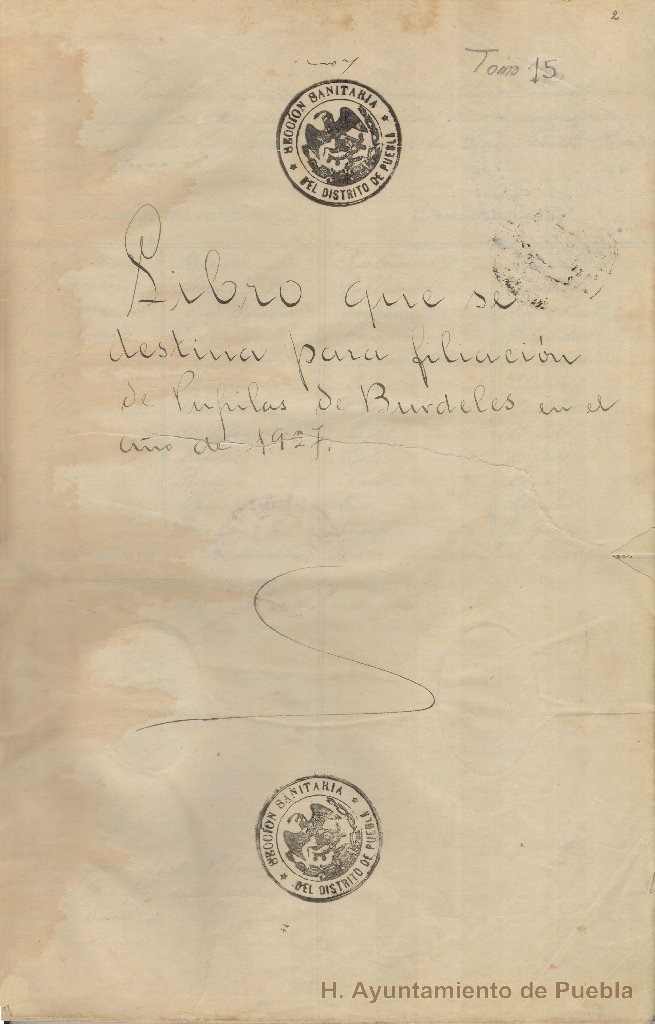 2
Tomo 15
SECCIÓN SANITARIA
DEL DISTRITO DE PUEBLA
Libro que se
destina para filiación
de Pupilas de Burdeles en el
año de 1927.
SECCIÓN SANITARIA
DEL DISTRITO DE PUEBLA
H. Ayuntamiento de Puebla